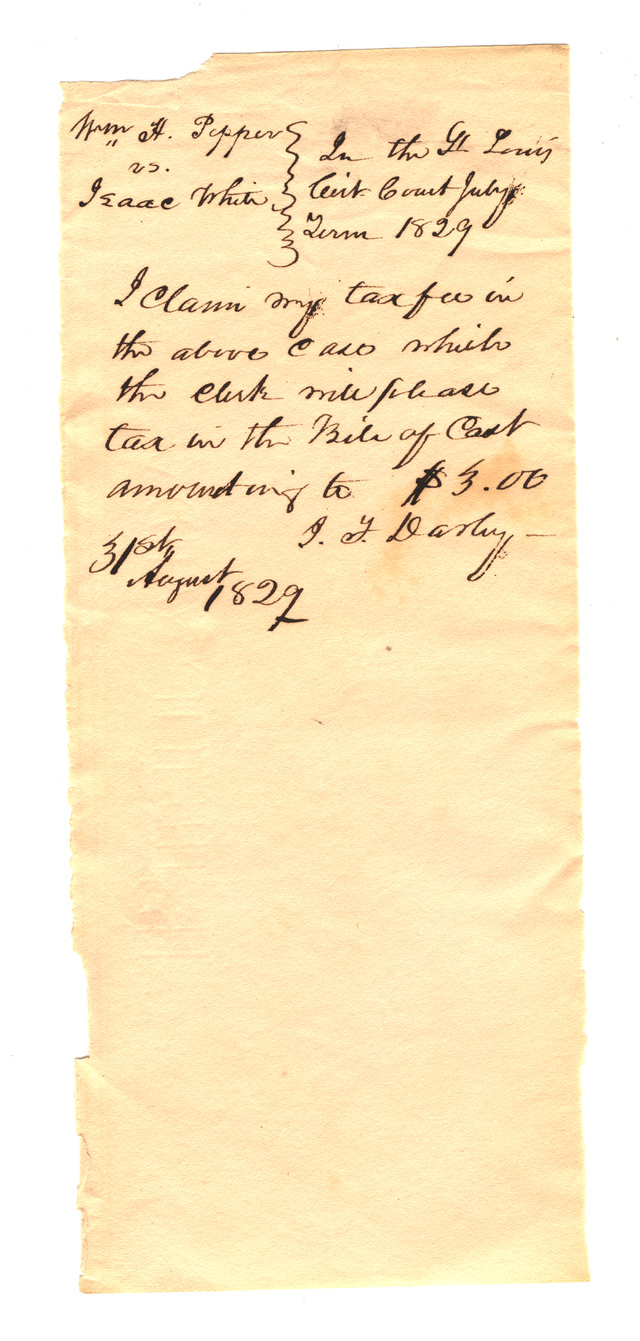 Wm H. Pepper
vs.
Isaac White
In the St Louis
Cirt Court July
Term 1829
I claim my tax fee in
the above case which
the clerk will please
tax in the Bill of Cost
amounting to $3.00
J. F. Darby
31st
August
1829